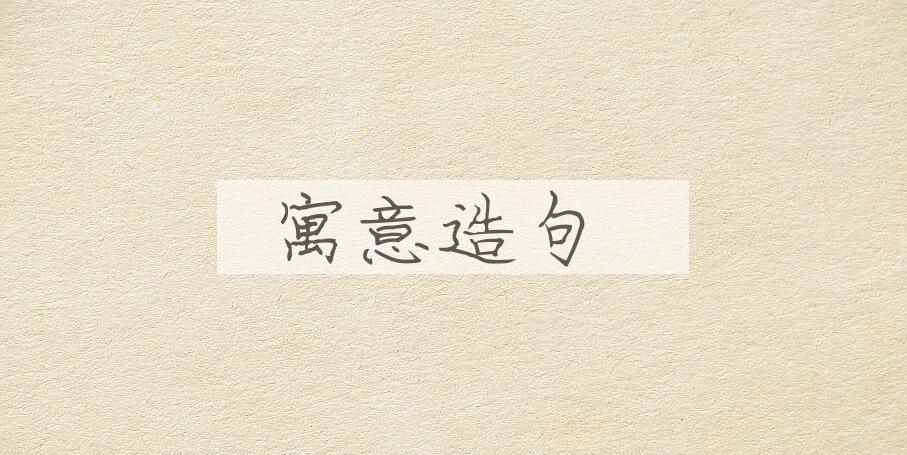 寓意造句